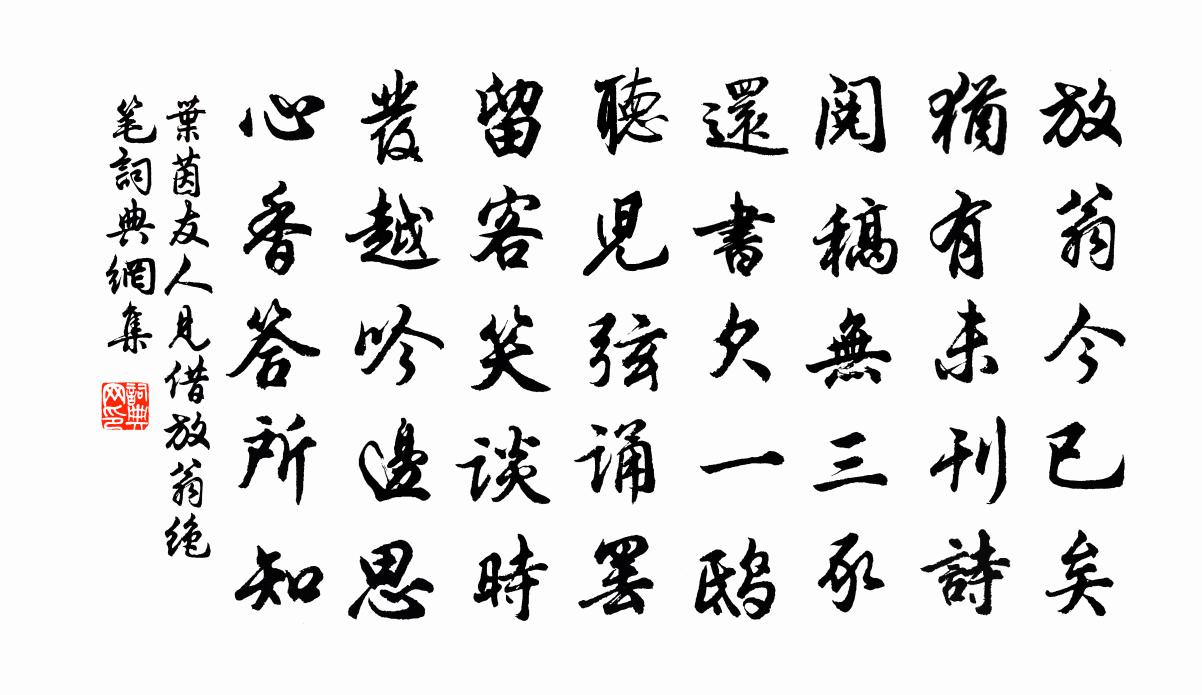 放翁今已矣
猶有未刊詩
閱稿無三豕
還書欠一鴟
聽児弦诵罢
留客笑谈時
發越吟邊思
心香答所知
葉茵友人見借放翁絶
笔詞典網集
詞典网印